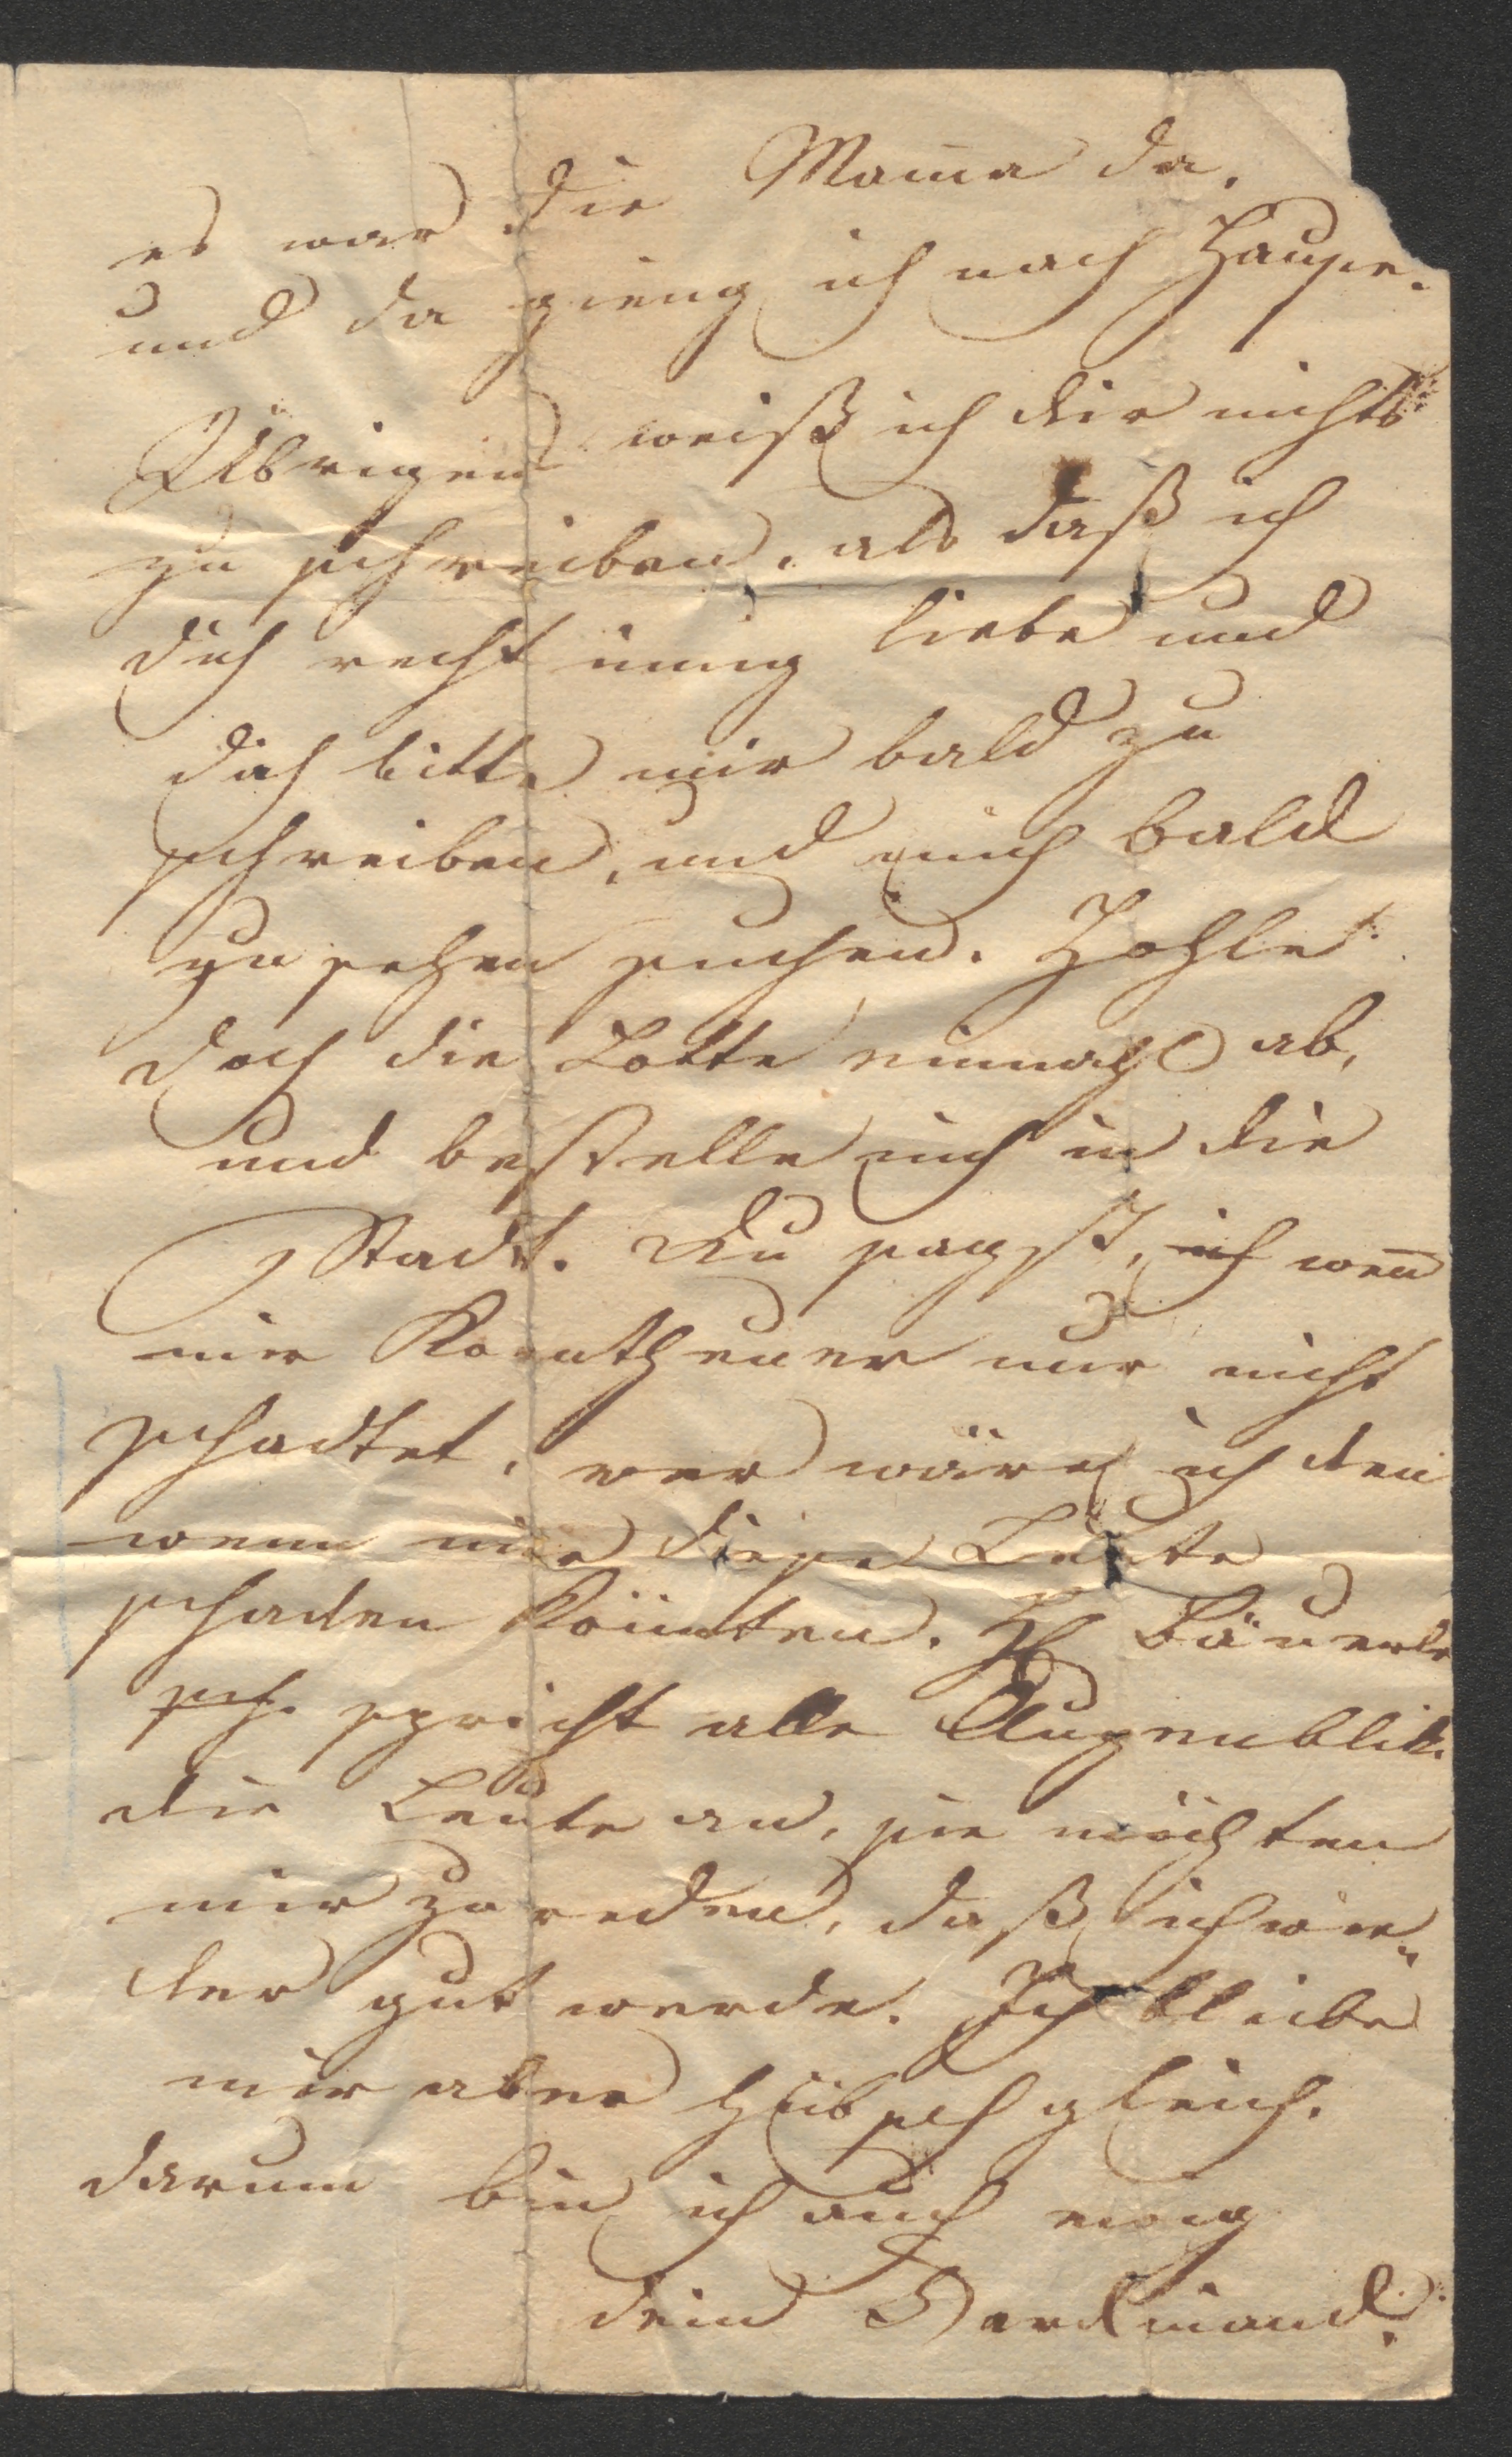 es war die Mam̅a da,
und da gieng ich nach Hause.
Übrigens weiß ich dir nichts
zu schreiben, als daß ich
dich recht in̅ig liebe und
dich bitte mir bald zu
schreiben, und mich bald
zu sehen suchen. Hohle
doch die Lotte einmahl ab,
und bestelle mich in die
Stadt. Du sagst, ich wen̅
mir Korntheuer nur nicht
schadtet, wer wäre ich den̅
wenn mir diese Leute
schaden kön̅ten. H Bäuerle
sch. spricht alle Augenblick
die Leute an, sie möchten
mir zureden, daß ich wie-
der gut werde. Ich bleibe
mir aber hübsch gleich.
darum bin ich auch ewig
dein Ferdinand.